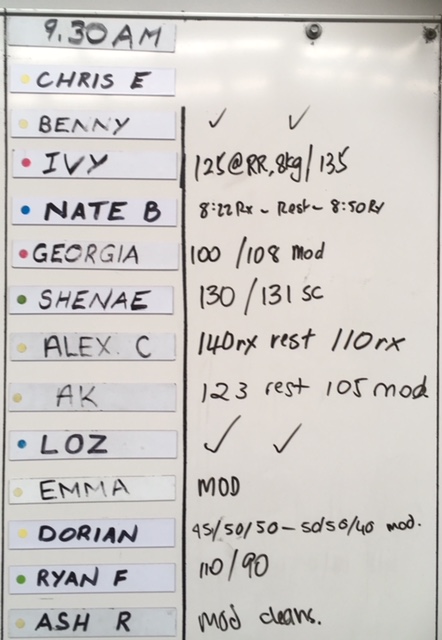 9.30AM
CHRIS E
BENNY ✓ ✓
IVY 125@RR,8kg/135
NATE B 8:22Rx - Rest - 8:50Rx
GEORGIA 100/108 Mod
SHENAE 130/131 SC
ALEX. C 140rx rest 110rx
AK 123 rest 105 mod
LOZ ✓ ✓
EMMA MOD
DORIAN 45/50/50-50/50/40 mod.
RYAN F 110/90
ASH R Mod cleans.